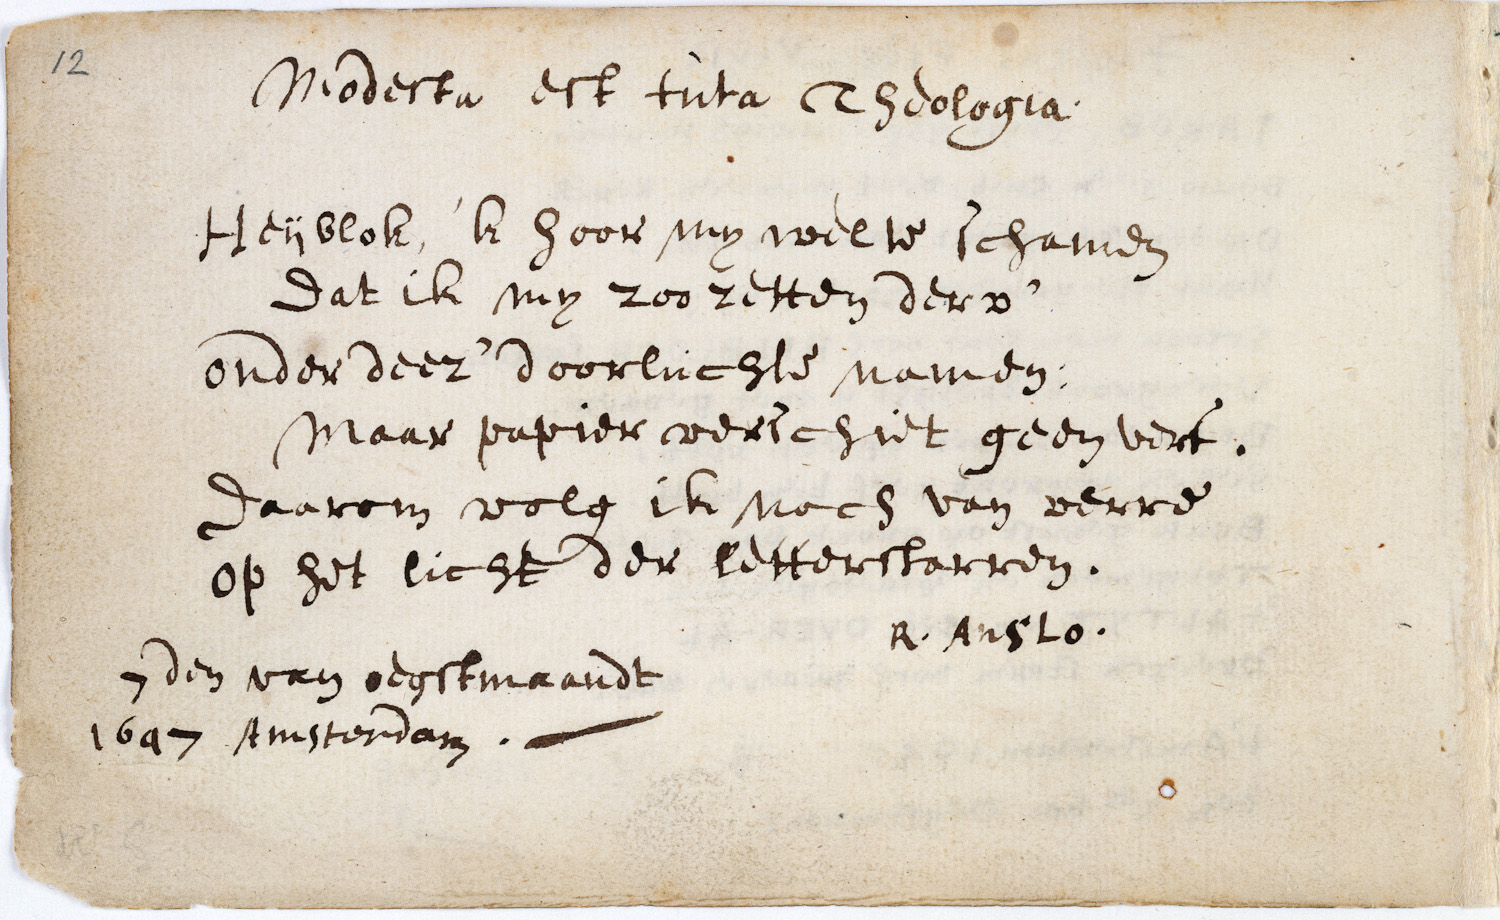 12
Modesta est tuta Theologia.
Heyblok, 'k hoor my wel te schamen
Dat ik my zoo zetten derv'
onder deez' doorluchte namen:
Maar papier verschiet geen verf.
Daarom volg ik noch van verre
op het licht der letterstarren.
R. Anslo.
7den van oegstmaandt
1647 Amsterdam.